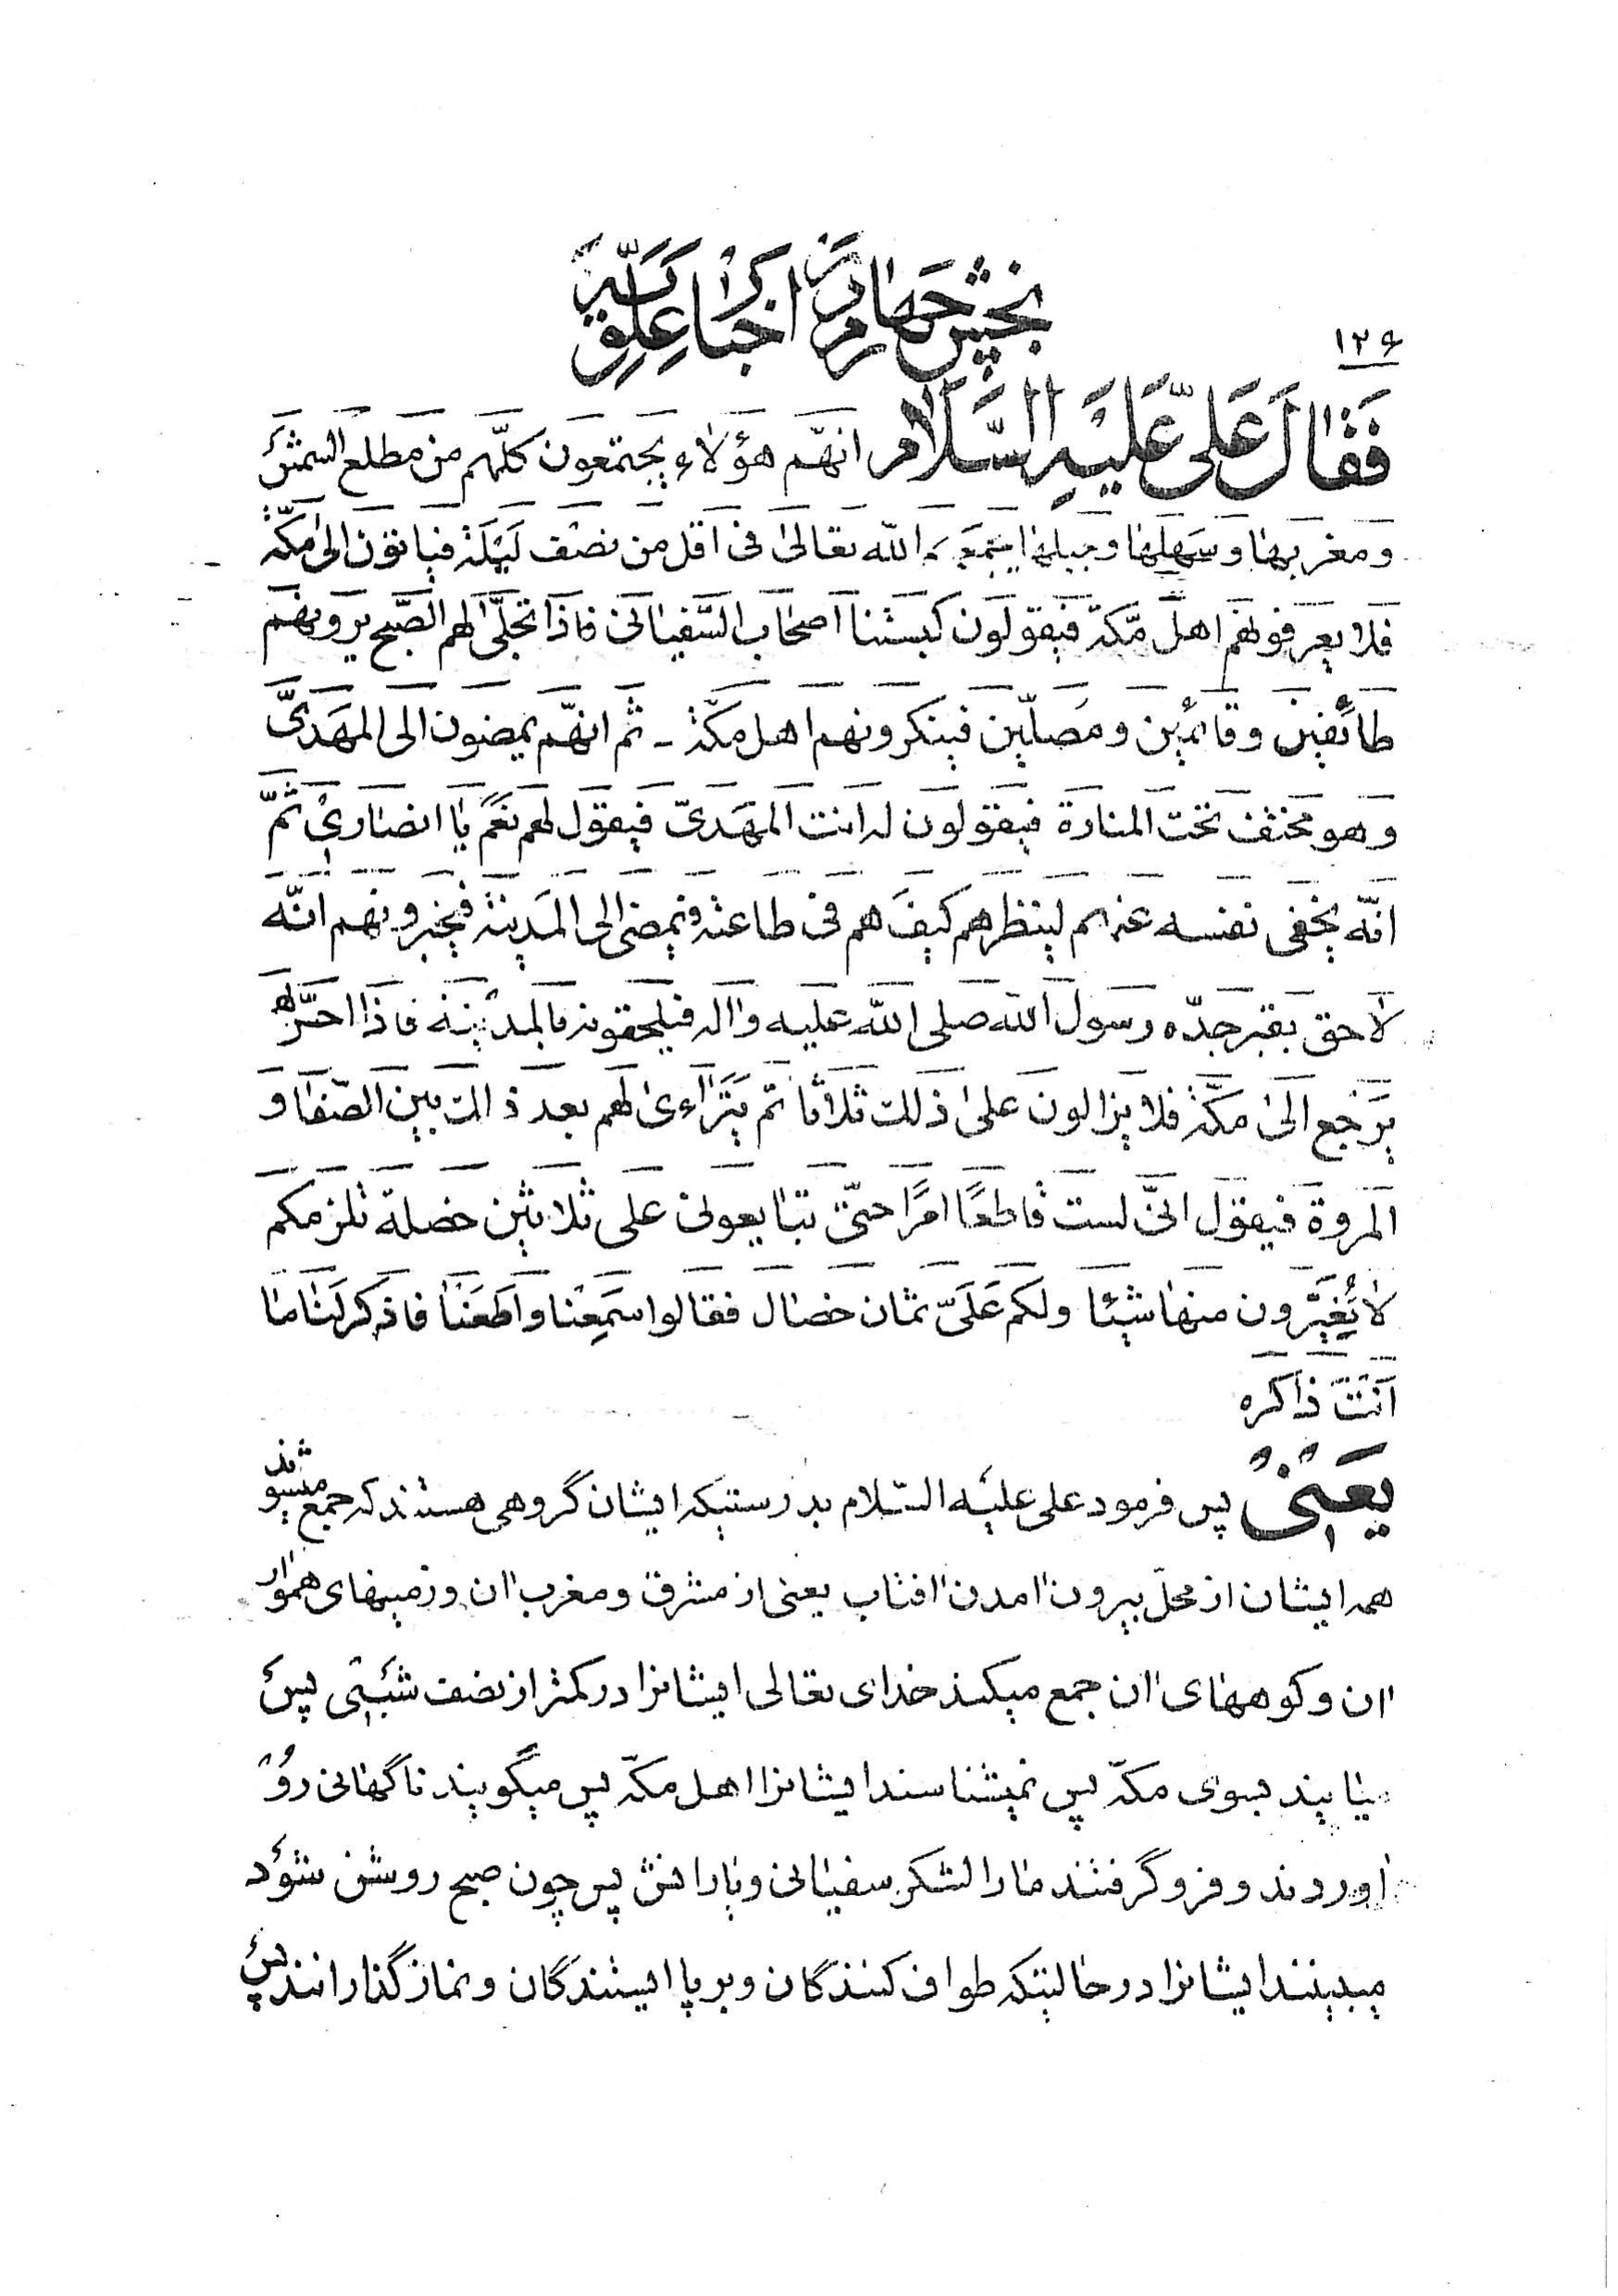 بخش چهارم در ذکر اخبار علویه
۱۲۶
فَقَالَ عَلِیّ عَلَیْهِ السَّلَام انهّم هؤلاء یجتمعون کلّهم من مطلع الشمس
و مغربها و سهلها و جبلها یجمعهم الله تعالی فی اقل من نصف لیلة فیاتون الی مکّة
فلا یعرفونهم اهل مکّة فیقولون کبستنا اصحاب السّفیانی فاذا تجلّی لهم الصّبح یرونهم
طائفین و قائمین و مصلّین فینکرونهم اهل مکّة - ثم انهّم یمضون الی المهدیّ
و هو مختف تحت المنارة فیقولون له انت المهدیّ فیقول لهم نعم یا انصاری ثمّ
انّه یخفی نفسه عنهم لینظرهم کیف هم فی طاعته فیمضی الی المدینة فیخبرونهم انّه
لاحق بقبر جدّه رسول الله صلی الله علیه و اله فیلحقونه بالمدینة فاذا احسّ بهم
یرجع الی مکّة فلا یزالون علی ذلک ثلاثا ثم یتراءی لهم بعد ذالک بین الصّفا و
المروة فیقول انیّ لست قاطعًا امرًا حتیّ تبایعونی علی ثلاثین خصلة تلزمکم
لا تُغیَّرون منها شیئا و لکم عَلَیّ ثمان خصال فقالوا سَمِعْنا و اطَعْنا فاذکر لنا ما
اَنتَ ذاکره
یَعْنِیْ پس فرمود علی علیه السّلام بدرستیکه ایشان گروهی هستند که جمع میشوند
همه ایشان از محلّ بیرون امدن افتاب یعنی از مشرق و مغرب ان و زمینهای هموار
ان و کوههای ان جمع میکند خدای تعالی ایشانرا در کمتر از نصف شبی پس
میایند بسوی مکّه پس نمیشناسند ایشانرا اهل مکّه پس میگویند ناگهانی رو
اوردند و فرو گرفتند ما را لشکر سفیانی و یارانش پس چون صبح روشن شود
میبینند ایشانرا در حالیتکه طواف کنندگان و برپا ایستندگان و نماز گذارانند پس